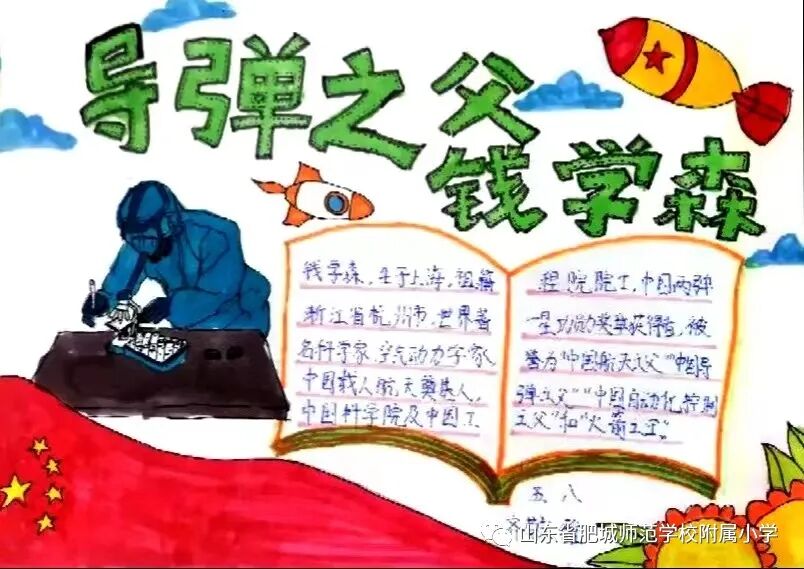 导弹之父
钱学森
钱学森，生于上海，祖籍
浙江省杭州市，世界著
名科学家，空气动力学家，
中国载人航天奠基人，
中国科学院及中国工
程院院士，中国两弹
一星功勋奖章获得者，被
誉为“中国航天之父”“中国导
弹之父”“中国自动化控制
之父”和“火箭之王”。
五 八
山东省肥城师范学校附属小学